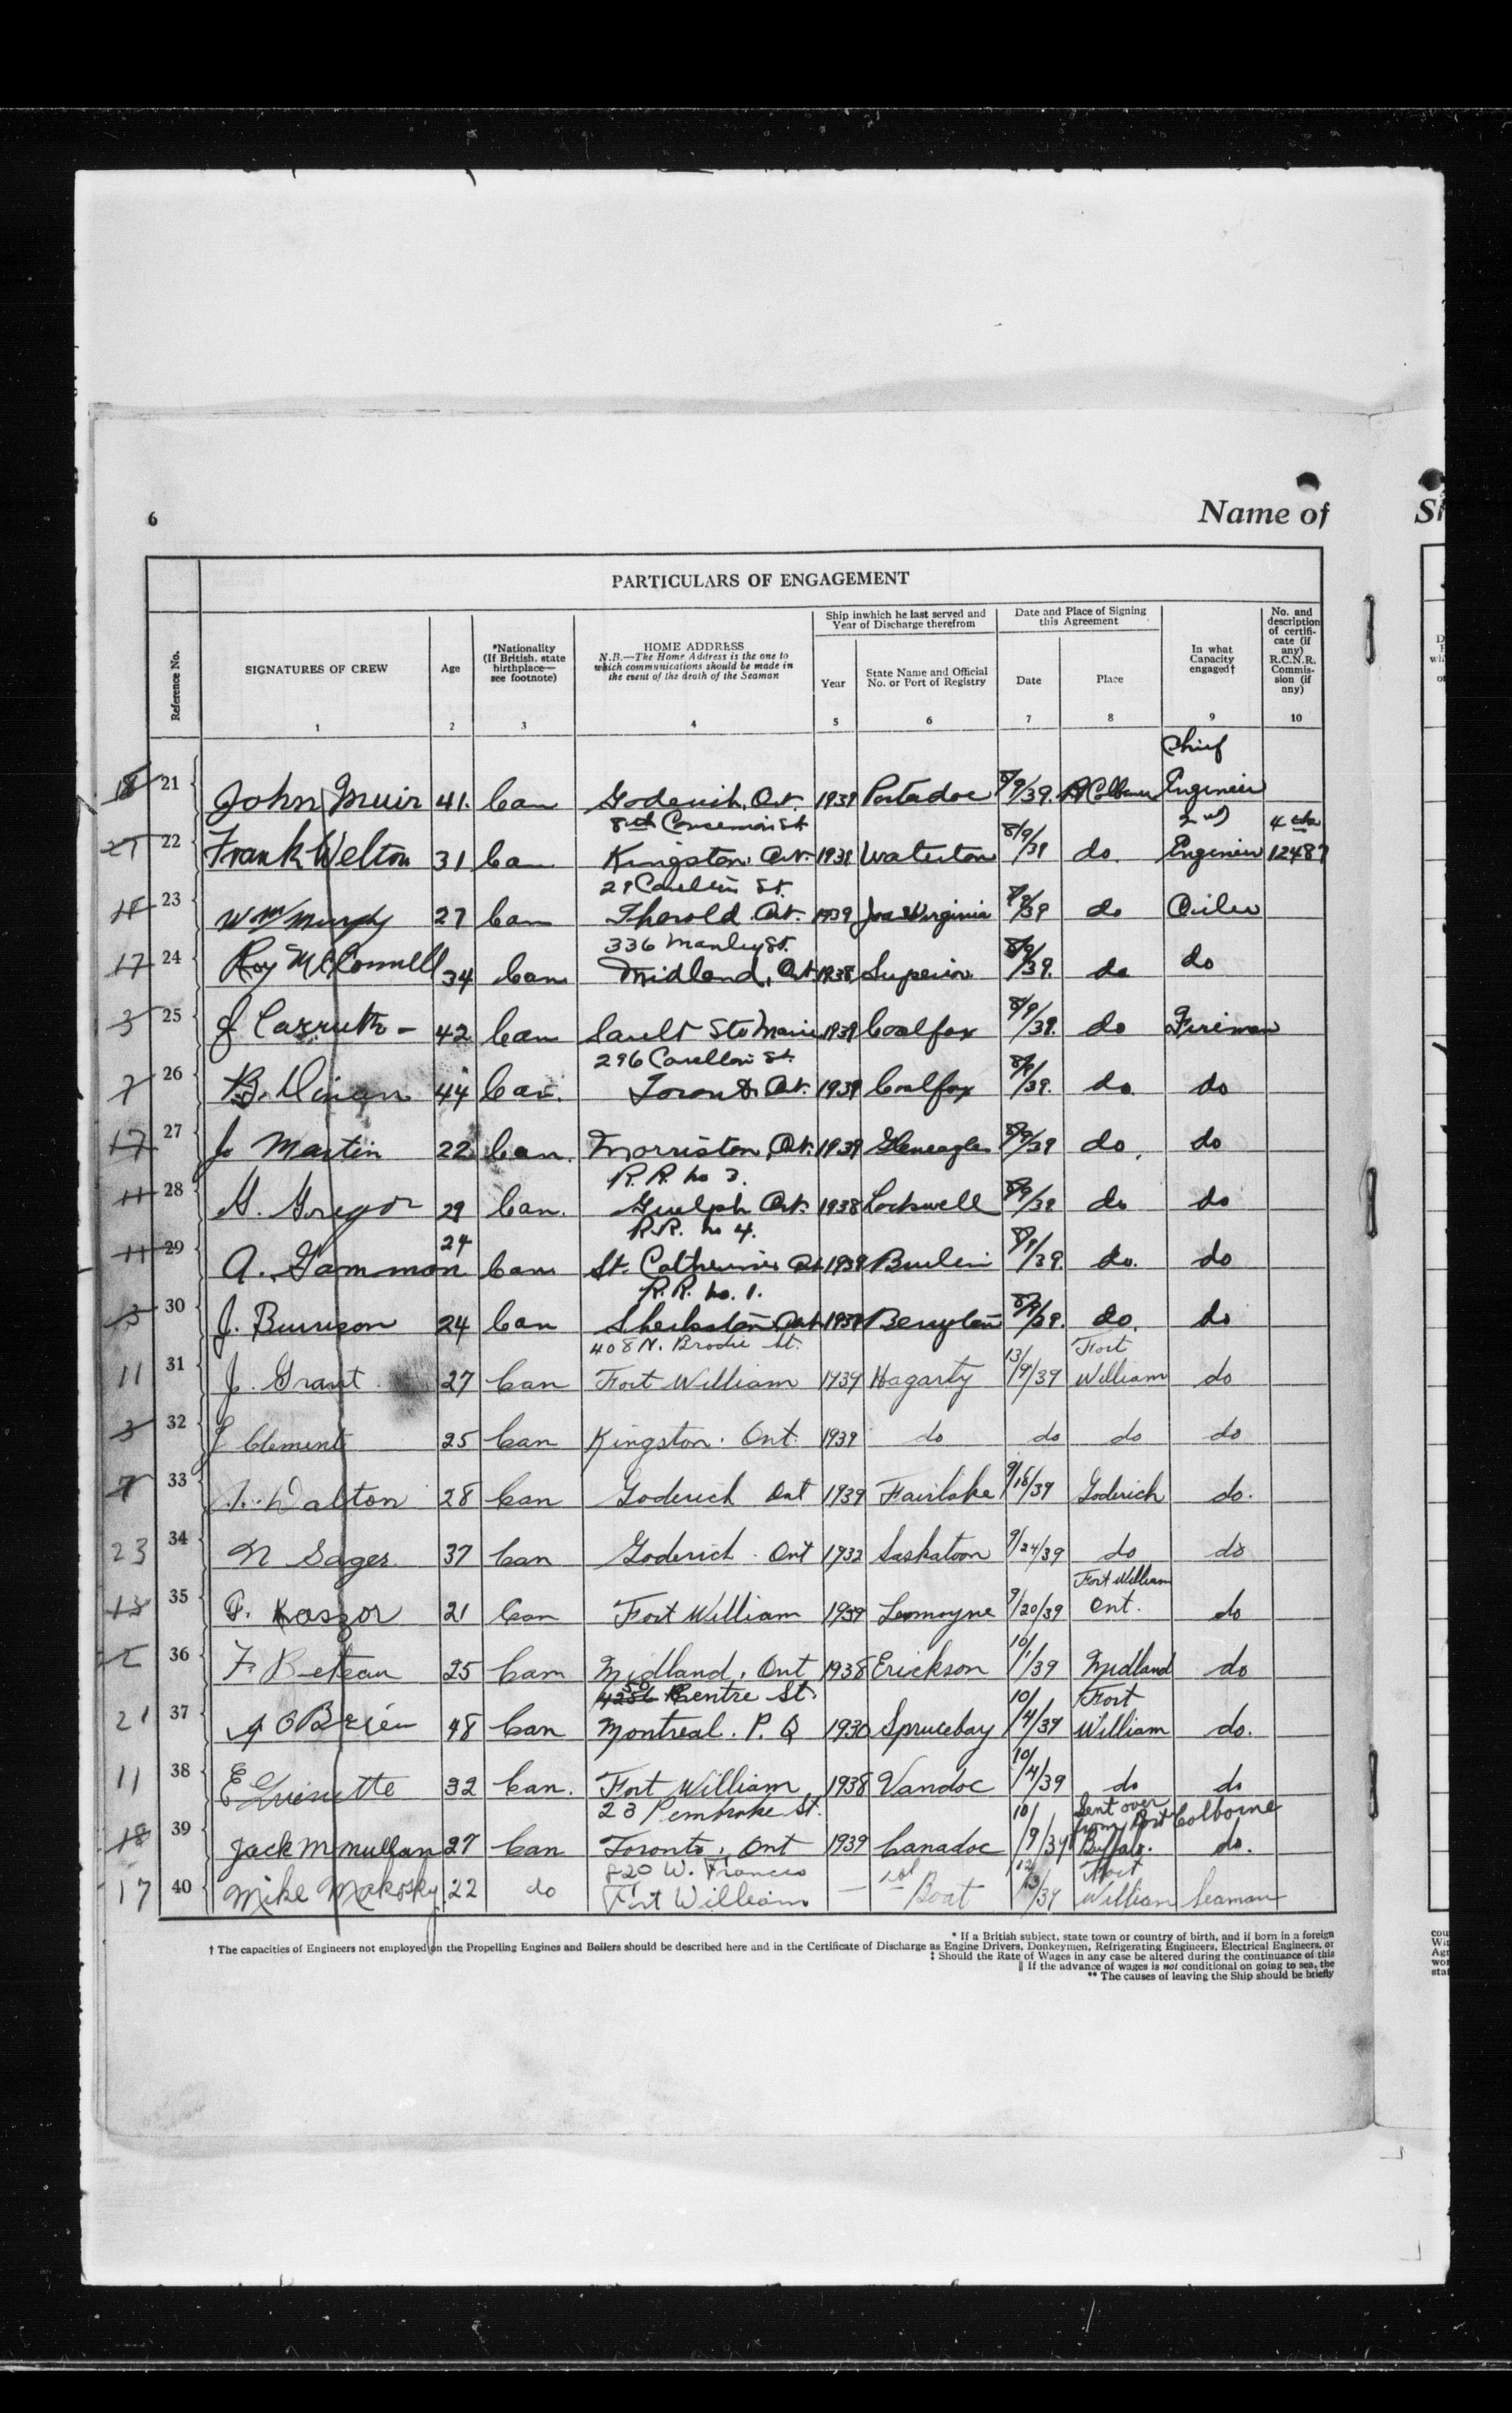 6
Name of
PARTICULARS OF ENGAGEMENT
Reference No.
SIGNATURES OF CREW
1
Age
2
*Nationality
(If British, state
birthplace—
see footnote)
3
HOME ADDRESS
N.B.—The Home Address is the one to
which communications should be made in
the event of the death of the Seaman
4
Ship inwhich he last served and
Year of Discharge therefrom
Year
5
State Name and Official
No. or Port of Registry
6
Date and Place of Signing
this Agreement
Date
7
Place
8
In what
Capacity
engaged†
9
No. and
description
of certifi-
cate (if
any)
R.C.N.R.
Commis-
sion (if
any)
10
Chief
18 21 John Muir 41. Can Goderich, Ont. 1939 Portadoc 8/9/39. Pt Colborne Engineer
8th Concession St 2nd 4th
21 22 Frank Welton 31 Can Kingston Ont. 1939 Waterton 8/9/39 do. Engineer 12487
29 St.
23 Wm Murphy 27 Can Thorold Ont. 1939 Joan Virginia 8/9/39 do Oiler
336 Manley St.
17 24 Roy McConnell 34 Can Midland, Ont 1938 Superior 8/9/39. do do
3 25 J Carruth - 42 Can Sault Ste Marie 1939 Coalfax 8/9/39. do Fireman
296 St.
7 26 B. Dinan 44 Can. Toronto Ont. 1939 Coalfax 8/9/39. do do
17 27 J. Martin 22 Can. Morriston, Ont. 1939 Gleneagles 8/9/39 do. do
R.R. No 3.
11 28 G. Gregor 29 Can. Guelph Ont. 1938 Lockwell 8/9/39 do do
R.R. No 4.
11 29 A. Gammon 24 Can St. Catherines Ont 1939 8/9/39. do. do
R.R. No. 1.
13 30 J. Burrison 24 Can Sherkston Ont 1939 8/9/39. do. do
408 N. Brodie St. Fort
11 31 J. Grant 27 Can Fort William 1939 Hagarty 13/9/39 William do
3 32 J Clement 25 Can Kingston. Ont. 1939 do do do do
7 33 Walton 28 Can Goderich Ont 1939 Fairlake 9/16/39 Goderich do.
23 34 N Sager 37 Can Goderich. Ont 1932 Saskatoon 9/24/39 do do
Fort William
13 35 Kaszor 21 Can Fort William 1939 Lemoyne 9/20/39 Ont. do
2 36 F. Beteau 25 Can Midland, Ont 1938 Erickson 10/1/39 Midland do
Centre St. Fort
21 37 A O'Brien 48 Can Montreal. P.Q 1930 Sprucebay 10/4/39 William do.
11 38 E Guenette 32 Can. Fort William 1938 Vandoc 10/4/39 do do
23 Pembroke St. Sent over
from Port Colborne
18 39 Jack McMullan 27 Can Toronto, Ont 1939 Canadoc 10/9/39 Buffalo. do.
820 W. Francis 1st Fort
17 40 Mike Makosky 22 do Fort William — Boat 12/3/39 William Seaman
* If a British subject, state town or country of birth, and if born in a foreign
† The capacities of Engineers not employed on the Propelling Engines and Boilers should be described here and in the Certificate of Discharge as Engine Drivers, Donkeymen, Refrigerating Engineers, Electrical Engineers, or
‡ Should the Rate of Wages in any case be altered during the continuance of this
‖ If the advance of wages is not conditional on going to sea, the
** The causes of leaving the Ship should be briefly